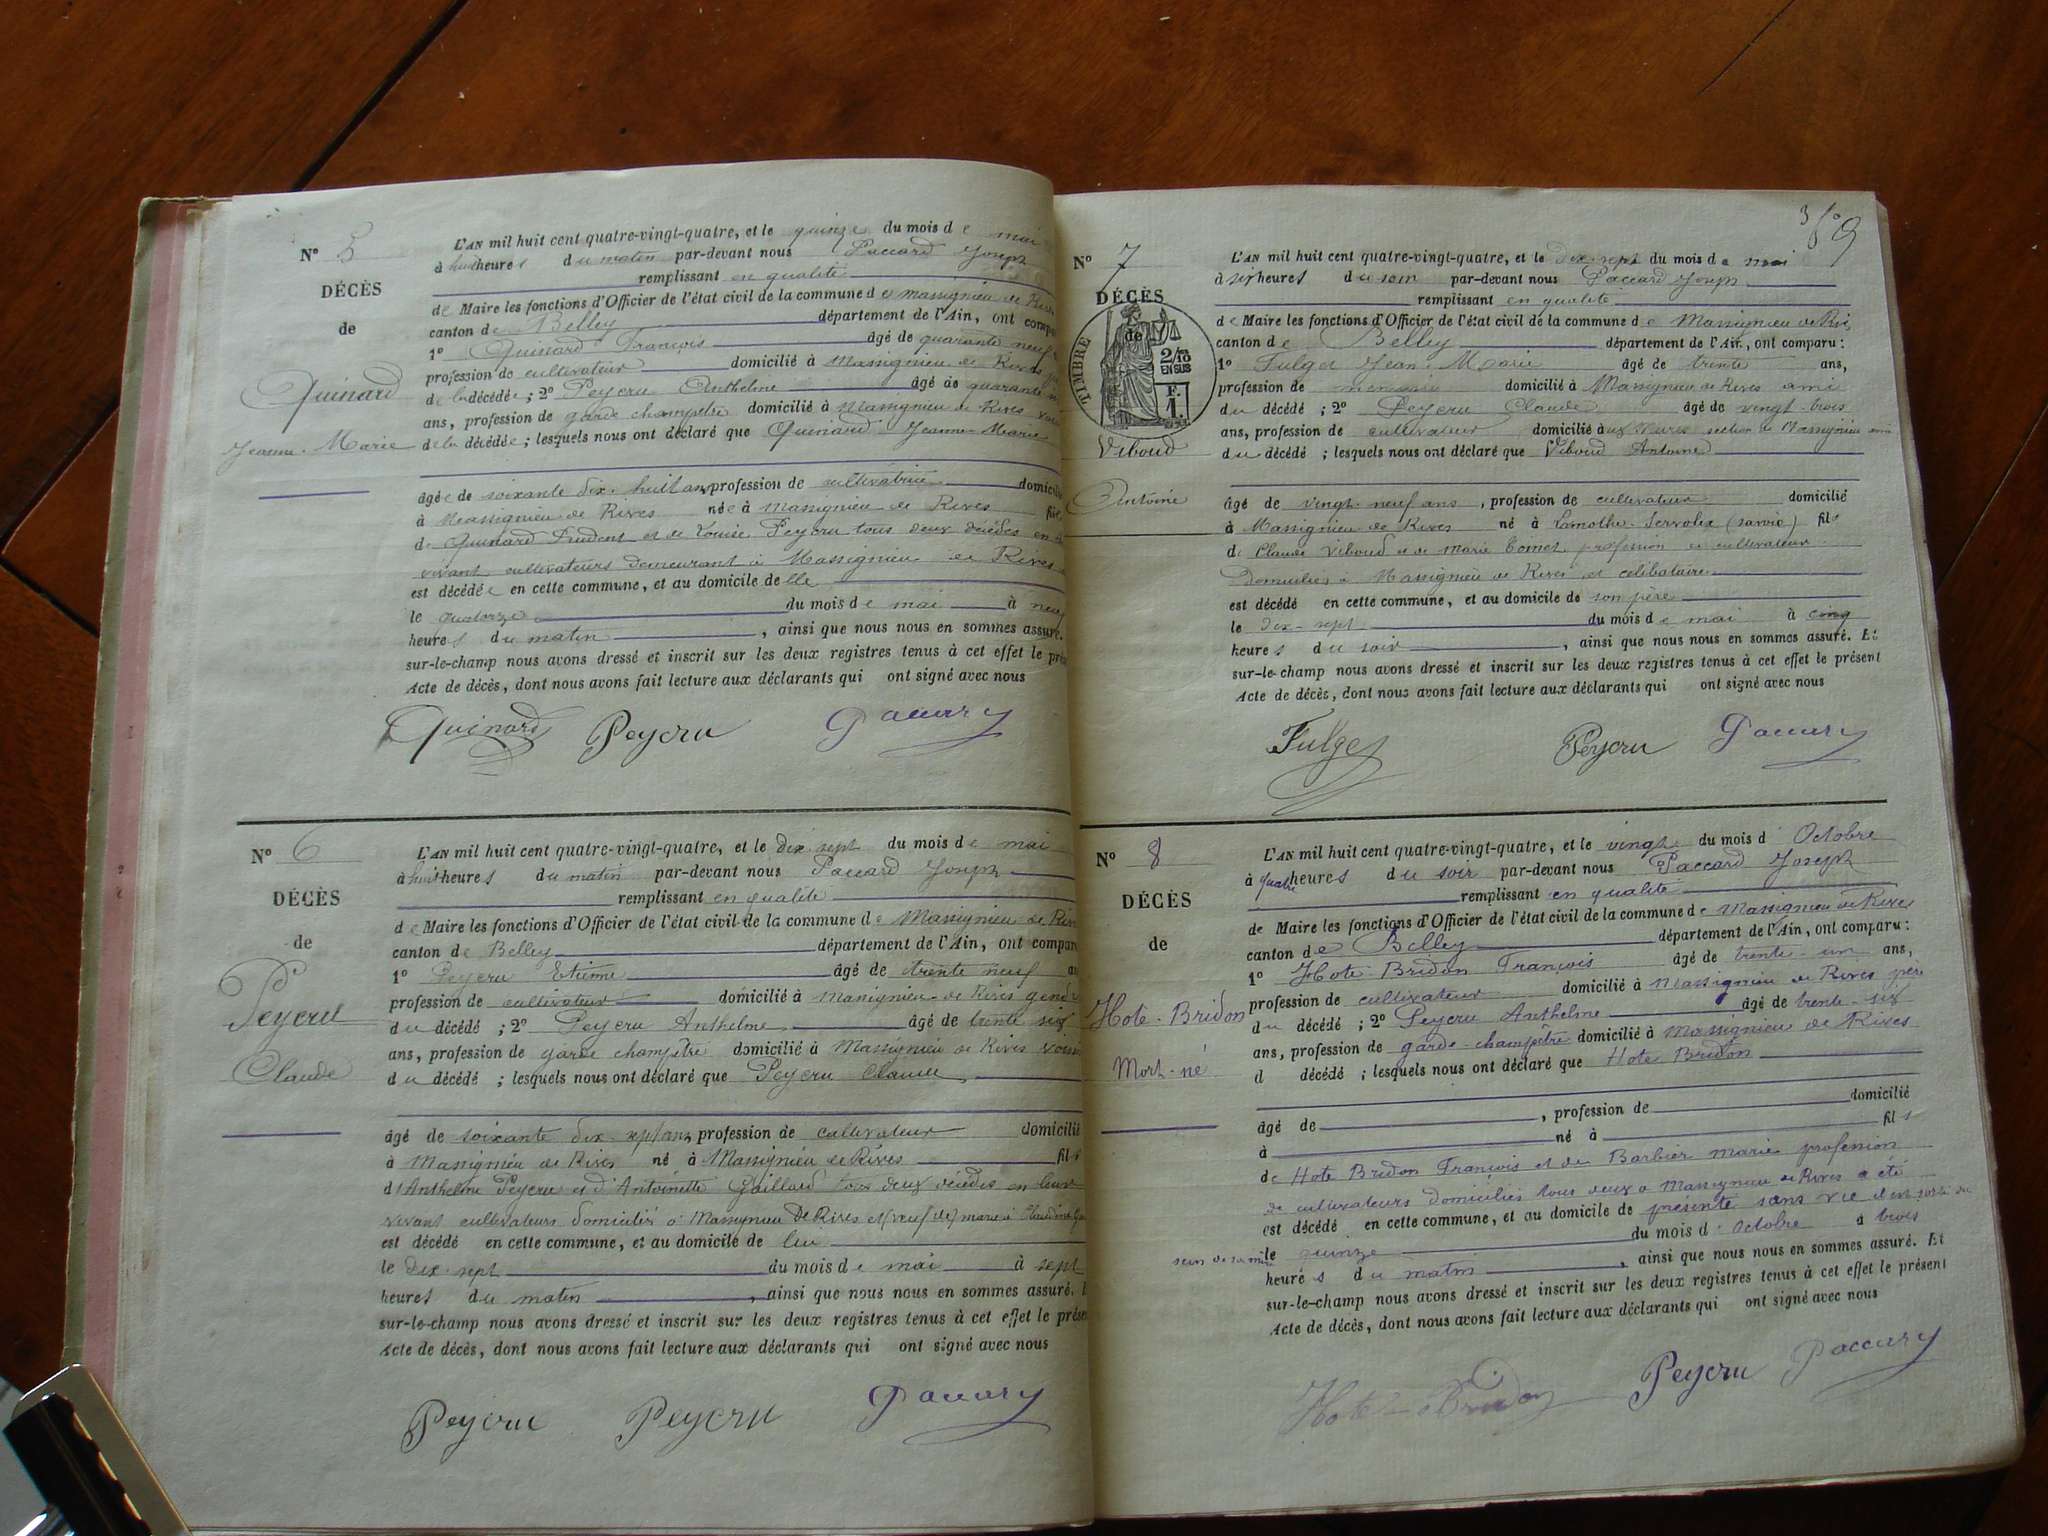 N° 5
DÉCÈS
de
Quinard
Jeanne-Marie
L'AN mil huit cent quatre-vingt-quatre, et le quinze du mois de mai
à huit heures du matin par-devant nous Paccard Joseph
remplissant en qualité
de Maire les fonctions d'Officier de l'état civil de la commune de Massignieu de Rives
canton de Belley département de l'Ain, ont compa
1° Quinard François âgé de quarante neuf
profession de cultivateur domicilié à Massignieu de Rives
de la décédée ; 2° Peycru Anthelme âgé de quarante
ans, profession de garde champêtre domicilié à Massignieu de Rives voi
de la décédée ; lesquels nous ont déclaré que Quinard Jeanne-Marie
âgée de soixante dix-huit ans, profession de cultivatrice domicilié
à Massignieu de Rives née à Massignieu de Rives fille
de Quinard Prudent et de Louise Peycru tous deux décédés en
vivant cultivateurs demeurant à Massignieu de Rives
est décédée en cette commune, et au domicile de elle
le quatorze du mois de mai à neuf
heures du matin , ainsi que nous nous en sommes assuré.
sur-le-champ nous avons dressé et inscrit sur les deux registres tenus à cet effet le prés
Acte de décès, dont nous avons fait lecture aux déclarants qui ont signé avec nous
Quinard Peycru Paccard
N° 6
DÉCÈS
de
Peycru
Claude
L'AN mil huit cent quatre-vingt-quatre, et le dix sept du mois de mai
à huit heures du matin par-devant nous Paccard Joseph
remplissant en qualité
de Maire les fonctions d'Officier de l'état civil de la commune de Massignieu de Rives
canton de Belley département de l'Ain, ont comparu
1° Peycru Etienne âgé de trente neuf an
profession de cultivateur domicilié à Massignieu de Rives gendre
du décédé ; 2° Peycru Anthelme âgé de trente six
ans, profession de garde champêtre domicilié à Massignieu de Rives voisin
du décédé ; lesquels nous ont déclaré que Peycru Claude
âgé de soixante dix-sept ans, profession de cultivateur domicilié
à Massignieu de Rives né à Massignieu de Rives fils
d'Anthelme Peycru et d'Antoinette Gaillard tous deux décédés en leur
vivant cultivateurs domiciliés à Massignieu de Rives et (veuf de) marié à Claudine
est décédé en cette commune, et au domicile de lui
le dix-sept du mois de mai à sept
heures du matin , ainsi que nous nous en sommes assuré. E
sur-le-champ nous avons dressé et inscrit sur les deux registres tenus à cet effet le présen
Acte de décès, dont nous avons fait lecture aux déclarants qui ont signé avec nous
Peycru Peycru Paccard
9
N° 7
DÉCÈS
de
TIMBRE
2/10 EN SUS
F. 1.
Viboud
Antoine
L'AN mil huit cent quatre-vingt-quatre, et le dix-sept du mois de mai
à six heures du soir par-devant nous Paccard Joseph
remplissant en qualité
de Maire les fonctions d'Officier de l'état civil de la commune de Massignieu de Rives
canton de Belley département de l'Ain, ont comparu :
1° Fulget Jean-Marie âgé de trente ans,
profession de domicilié à Massignieu de Rives ami
du décédé ; 2° Peycru Claude âgé de vingt-trois
ans, profession de cultivateur domicilié aux Mures section de Massignieu ami
du décédé ; lesquels nous ont déclaré que Viboud Antoine
âgé de vingt-neuf ans, profession de cultivateur domicilié
à Massignieu de Rives né à Lamothe-Servolex (savoie) fils
de Claude Viboud et de Marie profession de cultivateur
Domiciliés à Massignieu de Rives et célibataire
est décédé en cette commune, et au domicile de son père
le dix-sept du mois de mai à cinq
heures du soir , ainsi que nous nous en sommes assuré. Et
sur-le-champ nous avons dressé et inscrit sur les deux registres tenus à cet effet le présent
Acte de décès, dont nous avons fait lecture aux déclarants qui ont signé avec nous
Fulget Peycru Paccard
N° 8
DÉCÈS
de
Hote-Bridon
Mort-né
L'AN mil huit cent quatre-vingt-quatre, et le vingt du mois d'Octobre
à quatre heures du soir par-devant nous Paccard Joseph
remplissant en qualité
de Maire les fonctions d'Officier de l'état civil de la commune de Massignieu de Rives
canton de Belley département de l'Ain, ont comparu :
1° Hote-Bridon François âgé de trente-un ans,
profession de cultivateur domicilié à Massignieu de Rives père
du décédé ; 2° Peycru Anthelme âgé de trente-six
ans, profession de garde-champêtre domicilié à Massignieu de Rives
d décédé ; lesquels nous ont déclaré que Hote Bridon
âgé de , profession de domicilié
à né à fils
de Hote Bridon François et de Barbier Marie profession
de cultivateurs domiciliés tous deux à Massignieu de Rives a été
est décédé en cette commune, et au domicile de présenté sans vie et est sorti du
sein de sa mère le quinze du mois d'Octobre à trois
heures du matin , ainsi que nous nous en sommes assuré. Et
sur-le-champ nous avons dressé et inscrit sur les deux registres tenus à cet effet le présent
Acte de décès, dont nous avons fait lecture aux déclarants qui ont signé avec nous
Hote-Bridon Peycru Paccard